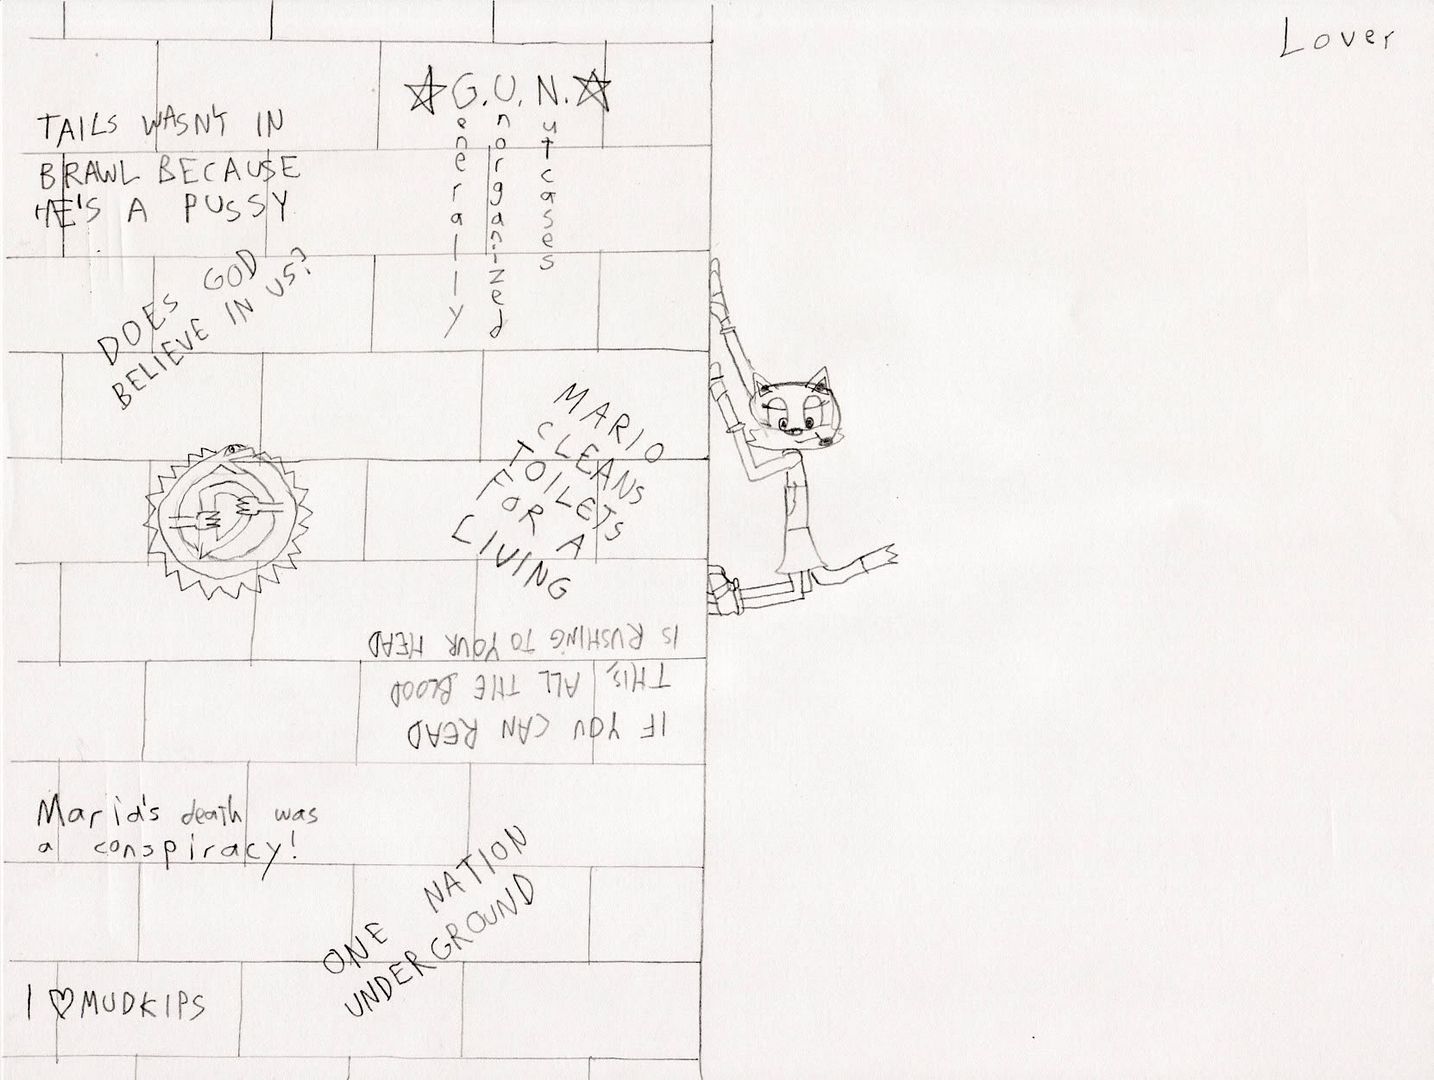 Lover
TAILS WASN'T IN
BRAWL BECAUSE
HE'S A PUSSY
☆G.U.N.☆
Generally
Unorganized
Nutcases
DOES GOD
BELIEVE IN US?
MARIO
CLEANS
TOILETS
FOR A
LIVING
IF YOU CAN READ
THIS, ALL THE BLOOD
IS RUSHING TO YOUR HEAD
Maria's death was
a conspiracy!
ONE NATION
UNDERGROUND
I ♡ MUDKIPS